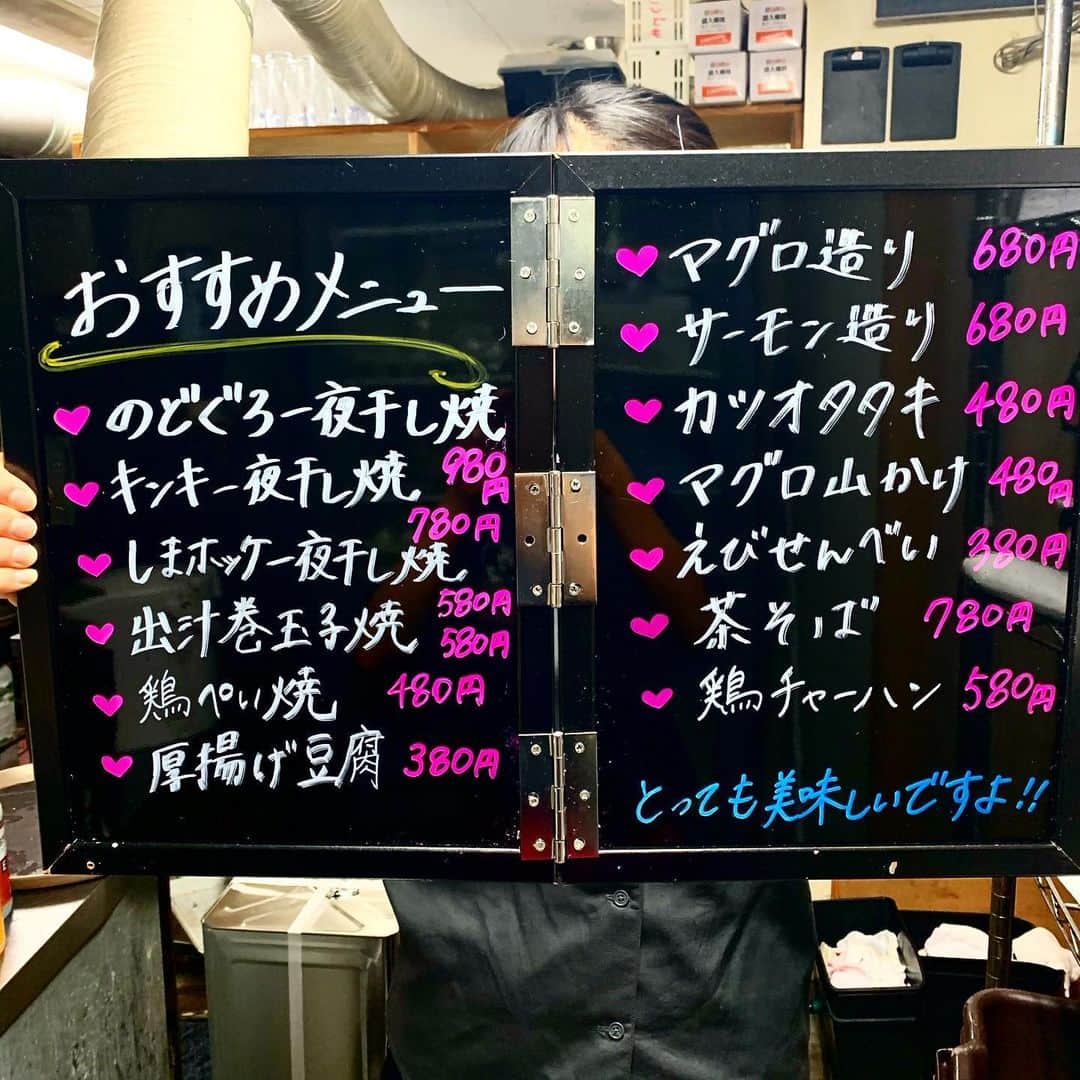 おすすめメニュー
のどぐろ一夜干し焼
980円
キンキ一夜干し焼
780円
しまホッケ一夜干し焼
580円
出汁巻玉子焼 580円
鶏ぺい焼 480円
厚揚げ豆腐 380円
マグロ造り 680円
サーモン造り 680円
カツオタタキ 480円
マグロ山かけ 480円
えびせんべい 380円
茶そば 780円
鶏チャーハン 580円
とっても美味しいですよ!!